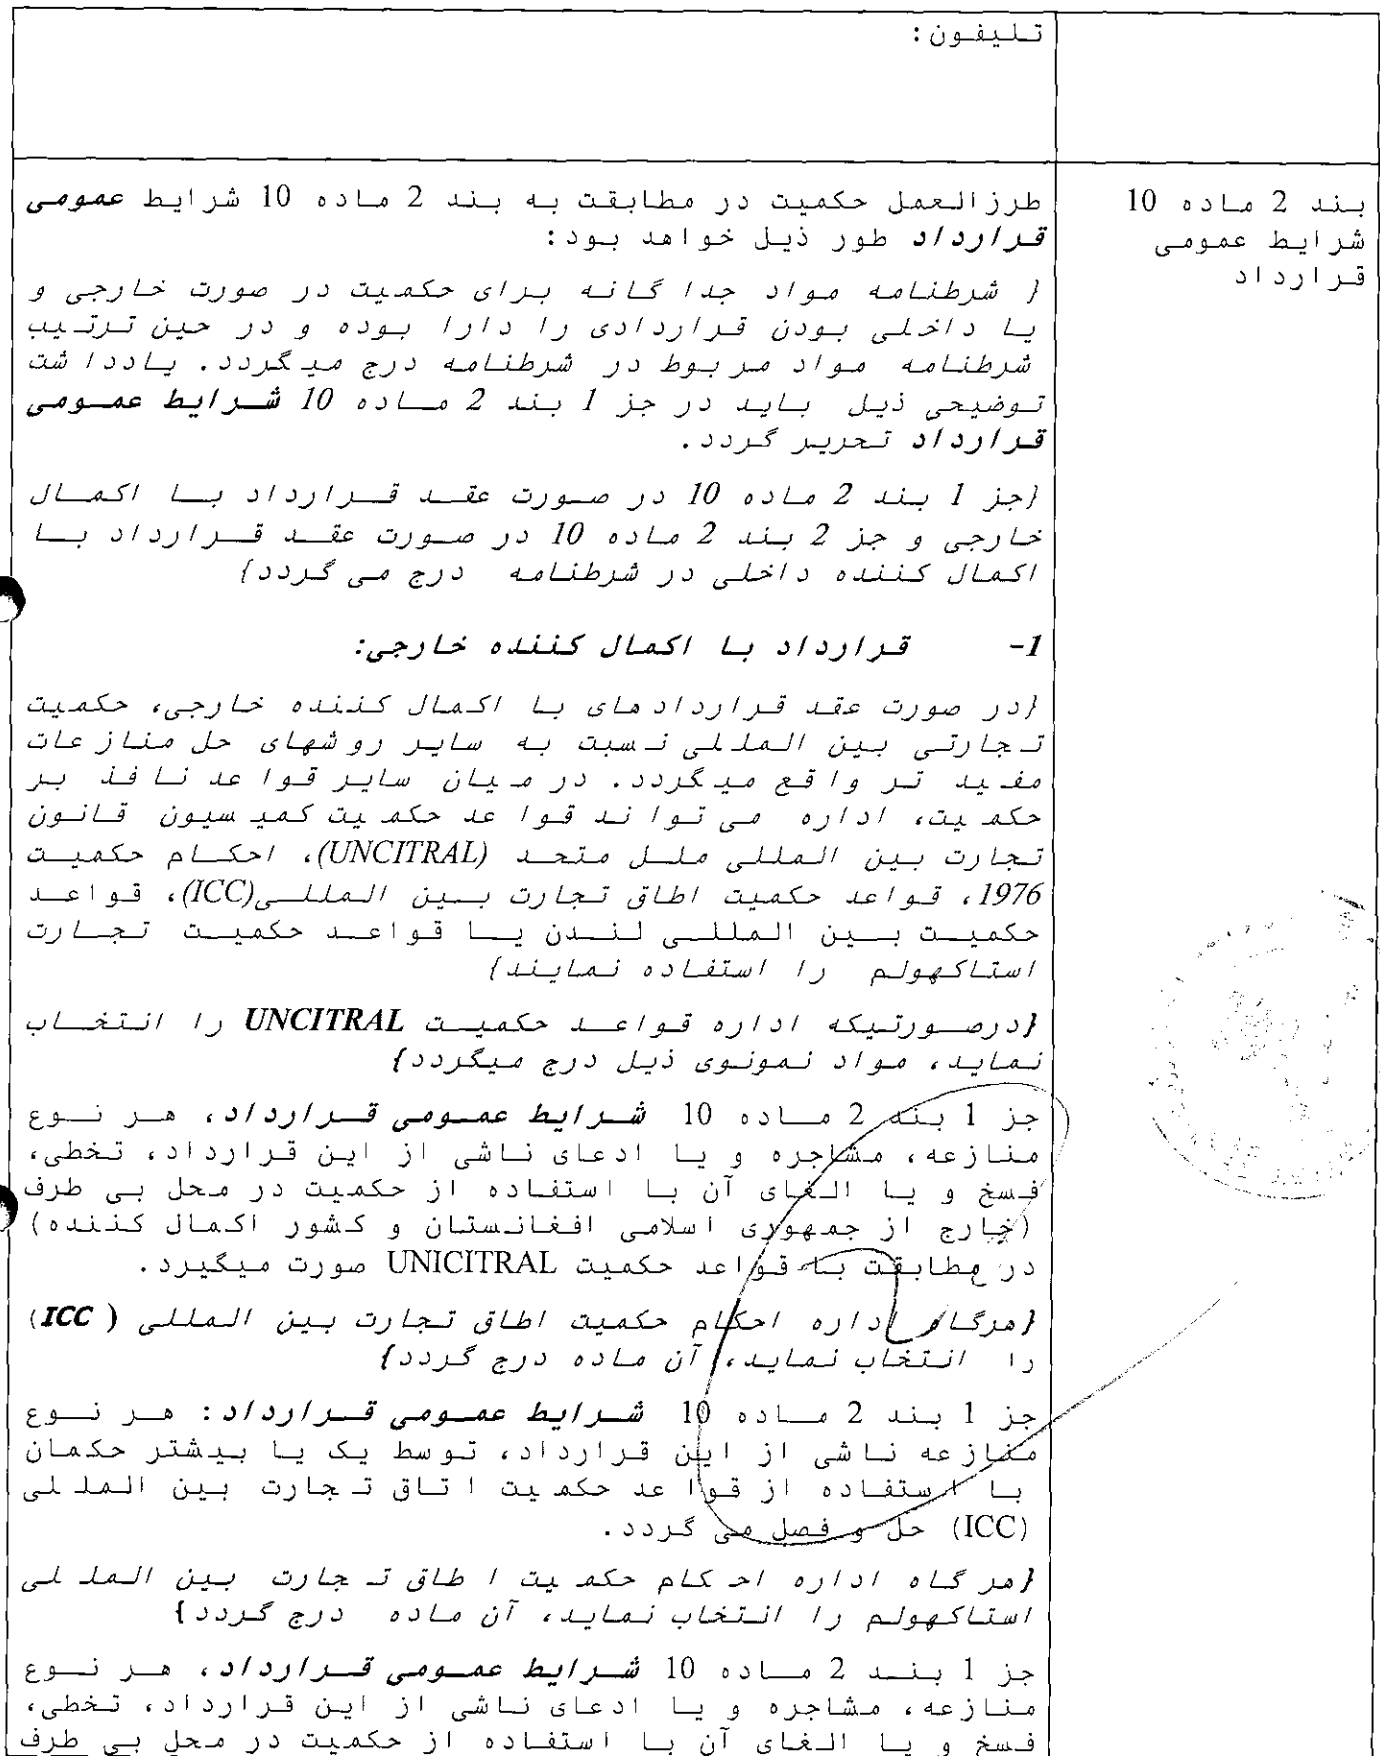 تلیفون:
بند 2 ماده 10
شرایط عمومی
قرارداد
طرزالعمل حکمیت در مطابقت به بند 2 ماده 10 شرایط عمومی
قرارداد طور ذیل خواهد بود:
{ شرطنامه مواد جدا گانه برای حکمیت در صورت خارجی و
یا داخلی بودن قراردادی را دارا بوده و در حین ترتیب
شرطنامه مواد مربوط در شرطنامه درج میگردد. یادداشت
توضیحی ذیل باید در جز 1 بند 2 ماده 10 شرایط عمومی
قرارداد تحریر گردد.
{جز 1 بند 2 ماده 10 در صورت عقد قرارداد با اکمال
خارجی و جز 2 بند 2 ماده 10 در صورت عقد قرارداد با
اکمال کننده داخلی در شرطنامه درج می گردد}
1- قرارداد با اکمال کننده خارجی:
{در صورت عقد قراردادهای با اکمال کننده خارجی، حکمیت
تجارتی بین المللی نسبت به سایر روشهای حل منازعات
مفید تر واقع میگردد. در میان سایر قواعد نافذ بر
حکمیت، اداره می تواند قواعد حکمیت کمیسیون قانون
تجارت بین المللی ملل متحد (UNCITRAL)، احکام حکمیت
1976، قواعد حکمیت اطاق تجارت بین المللی(ICC)، قواعد
حکمیت بین المللی لندن یا قواعد حکمیت تجارت
استاکهولم را استفاده نمایند}
{درصورتیکه اداره قواعد حکمیت UNCITRAL را انتخاب
نماید، مواد نمونوی ذیل درج میگردد}
جز 1 بند 2 ماده 10 شرایط عمومی قرارداد، هر نوع
منازعه، مشاجره و یا ادعای ناشی از این قرارداد، تخطی،
فسخ و یا الغای آن با استفاده از حکمیت در محل بی طرف
(خارج از جمهوری اسلامی افغانستان و کشور اکمال کننده)
در مطابقت با قواعد حکمیت UNICITRAL صورت میگیرد.
{هرگاه اداره احکام حکمیت اطاق تجارت بین المللی (ICC)
را انتخاب نماید، آن ماده درج گردد}
جز 1 بند 2 ماده 10 شرایط عمومی قرارداد: هر نوع
منازعه ناشی از این قرارداد، توسط یک یا بیشتر حکمان
با استفاده از قواعد حکمیت اتاق تجارت بین المللی
(ICC) حل و فصل می گردد.
{هر گاه اداره احکام حکمیت اطاق تجارت بین المللی
استاکهولم را انتخاب نماید، آن ماده درج گردد}
جز 1 بند 2 ماده 10 شرایط عمومی قرارداد، هر نوع
منازعه، مشاجره و یا ادعای ناشی از این قرارداد، تخطی،
فسخ و یا الغای آن با استفاده از حکمیت در محل بی طرف